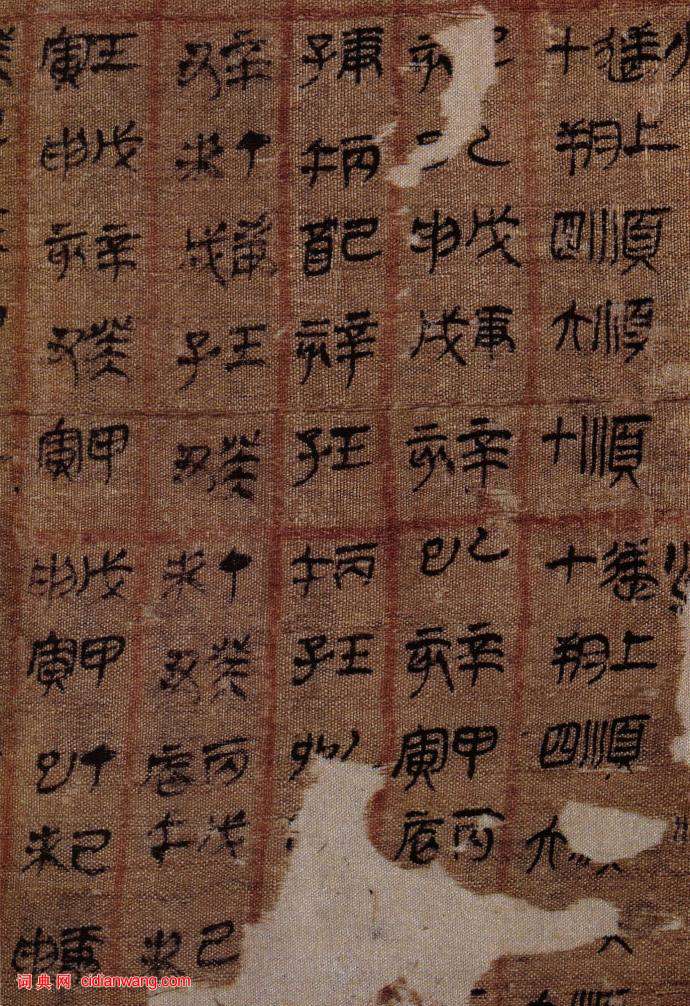 十
上朔
順四
順六
順十
十
上朔
順四
六
順
亥
乙
戊申
庚戌
辛亥
乙巳
辛亥
甲寅
丙辰
庚子
丙午
己酉
辛亥
壬子
丙午
壬子
辛丑
丁未
庚戌
壬子
癸丑
丁未
癸丑
丙辰
戊午
己未
壬寅
戊申
辛亥
癸丑
甲寅
戊申
甲寅
丁巳
己未
庚申
词典网 cidianwang.com